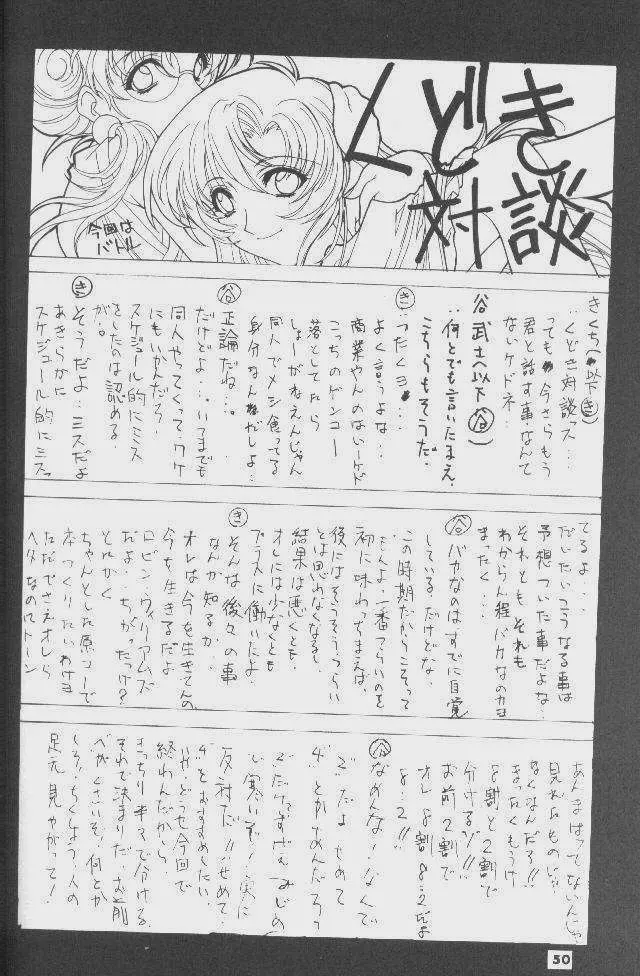 くどき
対談
今回は
バトル
きくち(以下き)
‥くどき対談ス‥
っても今さらもう
君と話す事なんて
ないケドネ‥
谷 武士(以下谷)
‥何とでも言いたまえ。
こちらもそうだ。
き
‥ったくヨ‥
よく言うよな‥
商業やんのはいーケド
こっちのゲンコー
落としてたら
しょーがねえんじゃん
同人でメシ食ってる
身分なんだしよ‥
谷
正論だね‥
だけどよ‥いつまでも
同人やってくってワケ
にもいかんだろ。
スケジュール的にミス
をしたのは認める
が。
き
そうだよ‥ミスだよ
あきらかに
スケジュール的にミスっ
てるよ‥
だいたいこうなる事は
予想ついた事だよな‥
それとも それも
わからん程バカなのか
まったく‥
谷
バカなのはすでに自覚
している。だけどな。
この時期だからこそって
もんよ。一番つらいのを
初に味わっちまえば、
後にはそうそうつらい
とは思わなくなるし
結果は悪くとも
オレには少なくとも
プラスに働いたよ。
き
そんな後々の事
なんか知るか。
オレは今を生きてんの
今を生きるだよ
ロビン・ウィリアムズ
だよ。ちがったっけ？
とにかく
ちゃんとした原コーで
本つくりたいわけヨ
ただでさえオレら
ヘタなのに トーン
あんまはってないんじゃ
見れたものじゃ
なくなんだろ!!
まったくもうけ
8割と2割で
分けるゾ!!
お前2割で
オレ8割 8:2だよ
8:2!!
谷
なめんな!なんで
2だよ せめて
4とかさめんだろっ
反対だ!!せめて
4とおすすめしたい。
や、どうせ今回で
終わんだから
きっちり半々で分ける
それで決まりだ。お前
足元見やがって!
50